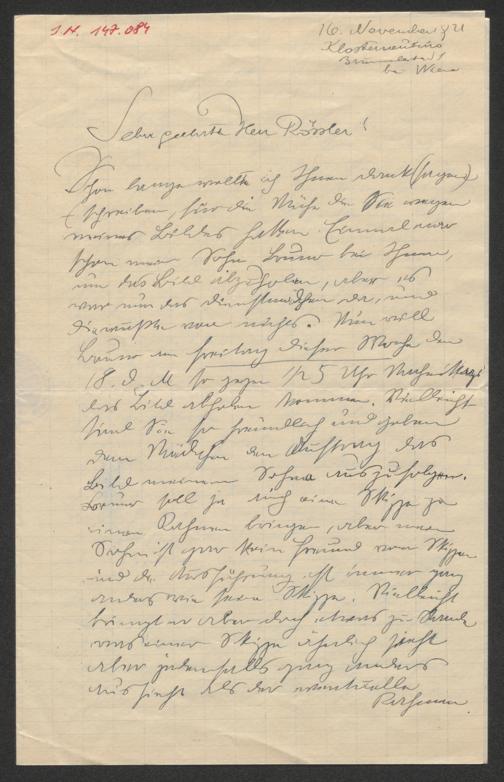 I.N. 147.084
16. November 1921
Klosterneuburg
bei Wien
Sehr geehrter Herr Rössler!
Schon lange wollte ich Ihnen dank(sagen)
schreiben, für die Mühe die Sie wegen
meines Bildes hatten. Einmal war
schon mein Sohn Bruno bei Ihnen,
um das Bild abzuholen, aber es
war nur das Dienstmädchen da, und
die wußte von nichts. Nun will
Bruno am Freitag dieser Woche den
18. d. M. so gegen 1/2 5 Uhr Nachmittags
das Bild abholen kommen. Vielleicht
sind Sie so freundlich und geben
dem Mädchen den Auftrag das
Bild meinem Sohne auszufolgen.
Bruno soll ja auch eine Skizze zu
einem Rahmen bringen, aber mein
Sohn ist gar kein Freund von Skizzen
und die Ausführung ist immer ganz
anders wie seine Skizze. Vielleicht
bringt er aber doch etwas zu Stande
was einer Skizze ähnlich sieht
aber jedenfalls ganz anders
aussieht als der eventuelle
Rahmen.